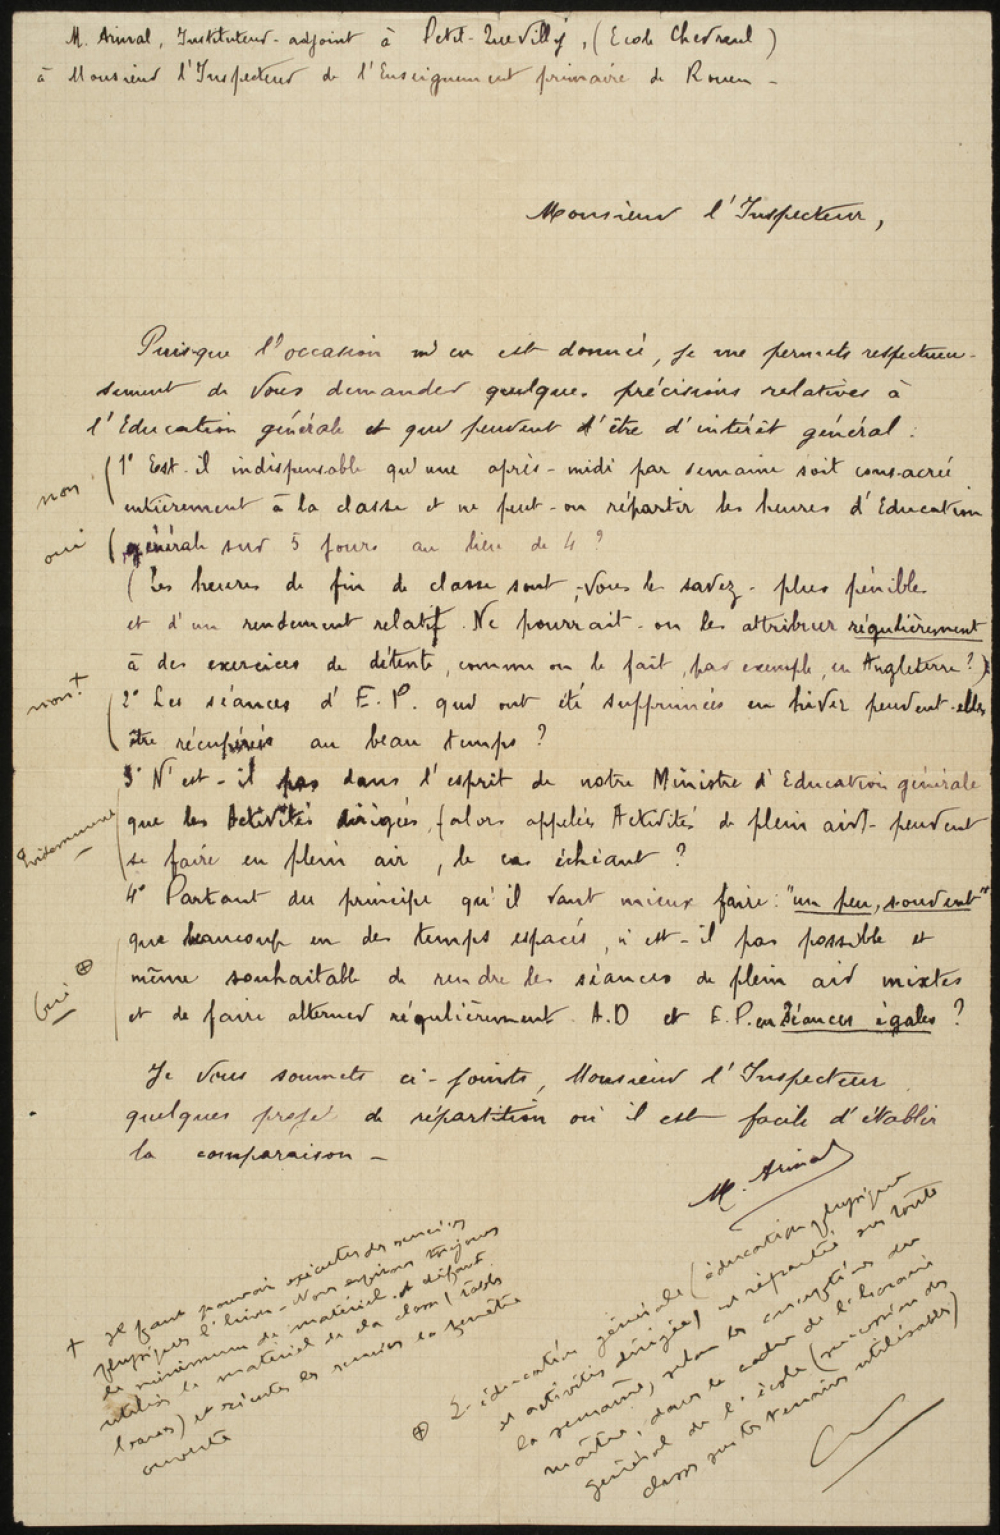 M. Arinal, Instituteur-adjoint à Petit-Quevilly, (Ecole Chevreul)
à Monsieur l'Inspecteur de l'Enseignement primaire de Rouen -
Monsieur l'Inspecteur,
Puisque l'occasion m'en est donnée, je me permets respectueu-
sement de Vous demander quelques précisions relatives à
l'Education générale et qui peuvent être d'intérêt général :
1° Est-il indispensable qu'une après-midi par semaine soit consacrée
non
entièrement à la classe et ne peut-on répartir les heures d'Education
oui
générale sur 5 jours au lieu de 4 ?
(Les heures de fin de classe sont, -Vous le savez- plus pénibles
et d'un rendement relatif. Ne pourrait-on les attribuer régulièrement
à des exercices de détente, comme on le fait, par exemple, en Angleterre ?)
non +
2° Les séances d'E.P. qui ont été supprimées en hiver peuvent-elles
être récupérées au beau temps ?
3° N'est-il pas dans l'esprit de notre Ministre d'Education générale
Evidemment
que les Activités dirigées, (alors appelées Activités de plein air) - peuvent
se faire en plein air, le cas échéant ?
4° Partant du principe qu'il vaut mieux faire : "un peu, souvent"
que beaucoup en des temps espacés, n'est-il pas possible et
Oui ⊕
même souhaitable de rendre les séances de plein air mixtes
et de faire alterner régulièrement A.D et E.P. en séances égales ?
Je Vous soumets ci-joints, Monsieur l'Inspecteur
quelques projets de répartition où il est facile d'établir
la comparaison -
M. Arinal
+ Il faut pouvoir exécuter des exercices
physiques l'hiver - Nous exigeons toujours
le minimum de matériel. A défaut
utiliser le matériel de la classe (tables
bancs) et exécuter les exercices la fenêtre
ouverte
⊕ L'éducation générale (éducation physique
et activités dirigées) est répartie sur toute
la semaine, selon les conceptions du
maître, dans le cadre de l'horaire
général de l'école (succession des
classes sur les terrains utilisables)